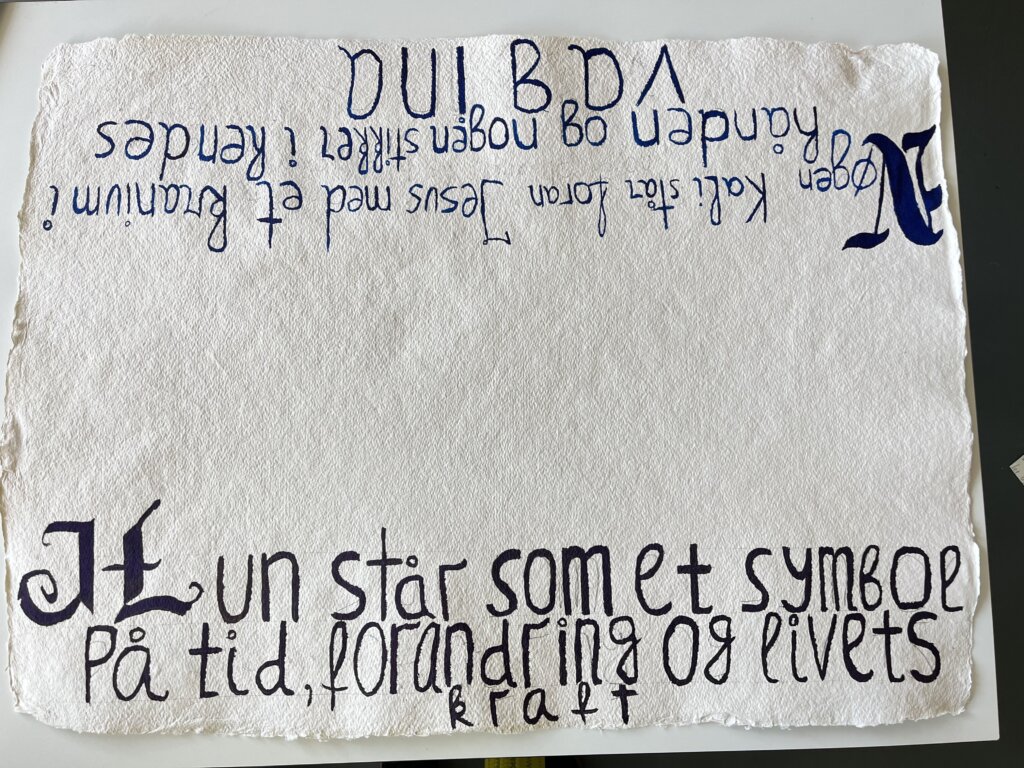 Nøgen Kali står foran Jesus med et kranium i
hånden og nogen stikker i hendes
vagina
Hun står som et symbol
på tid, forandring og livets
kraft